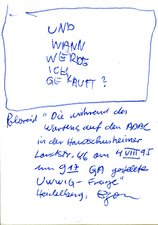 UND
WANN
WERDE
ICH
GEKAUFT?
Poloroid "Die während des
Wartens auf den ADAC
in der Handschuhsheimer
Landstr. 46 am 4 VIII 95
um 9 17 GA gestellte
UWWIG-Frage"
Heidelberg, Egon